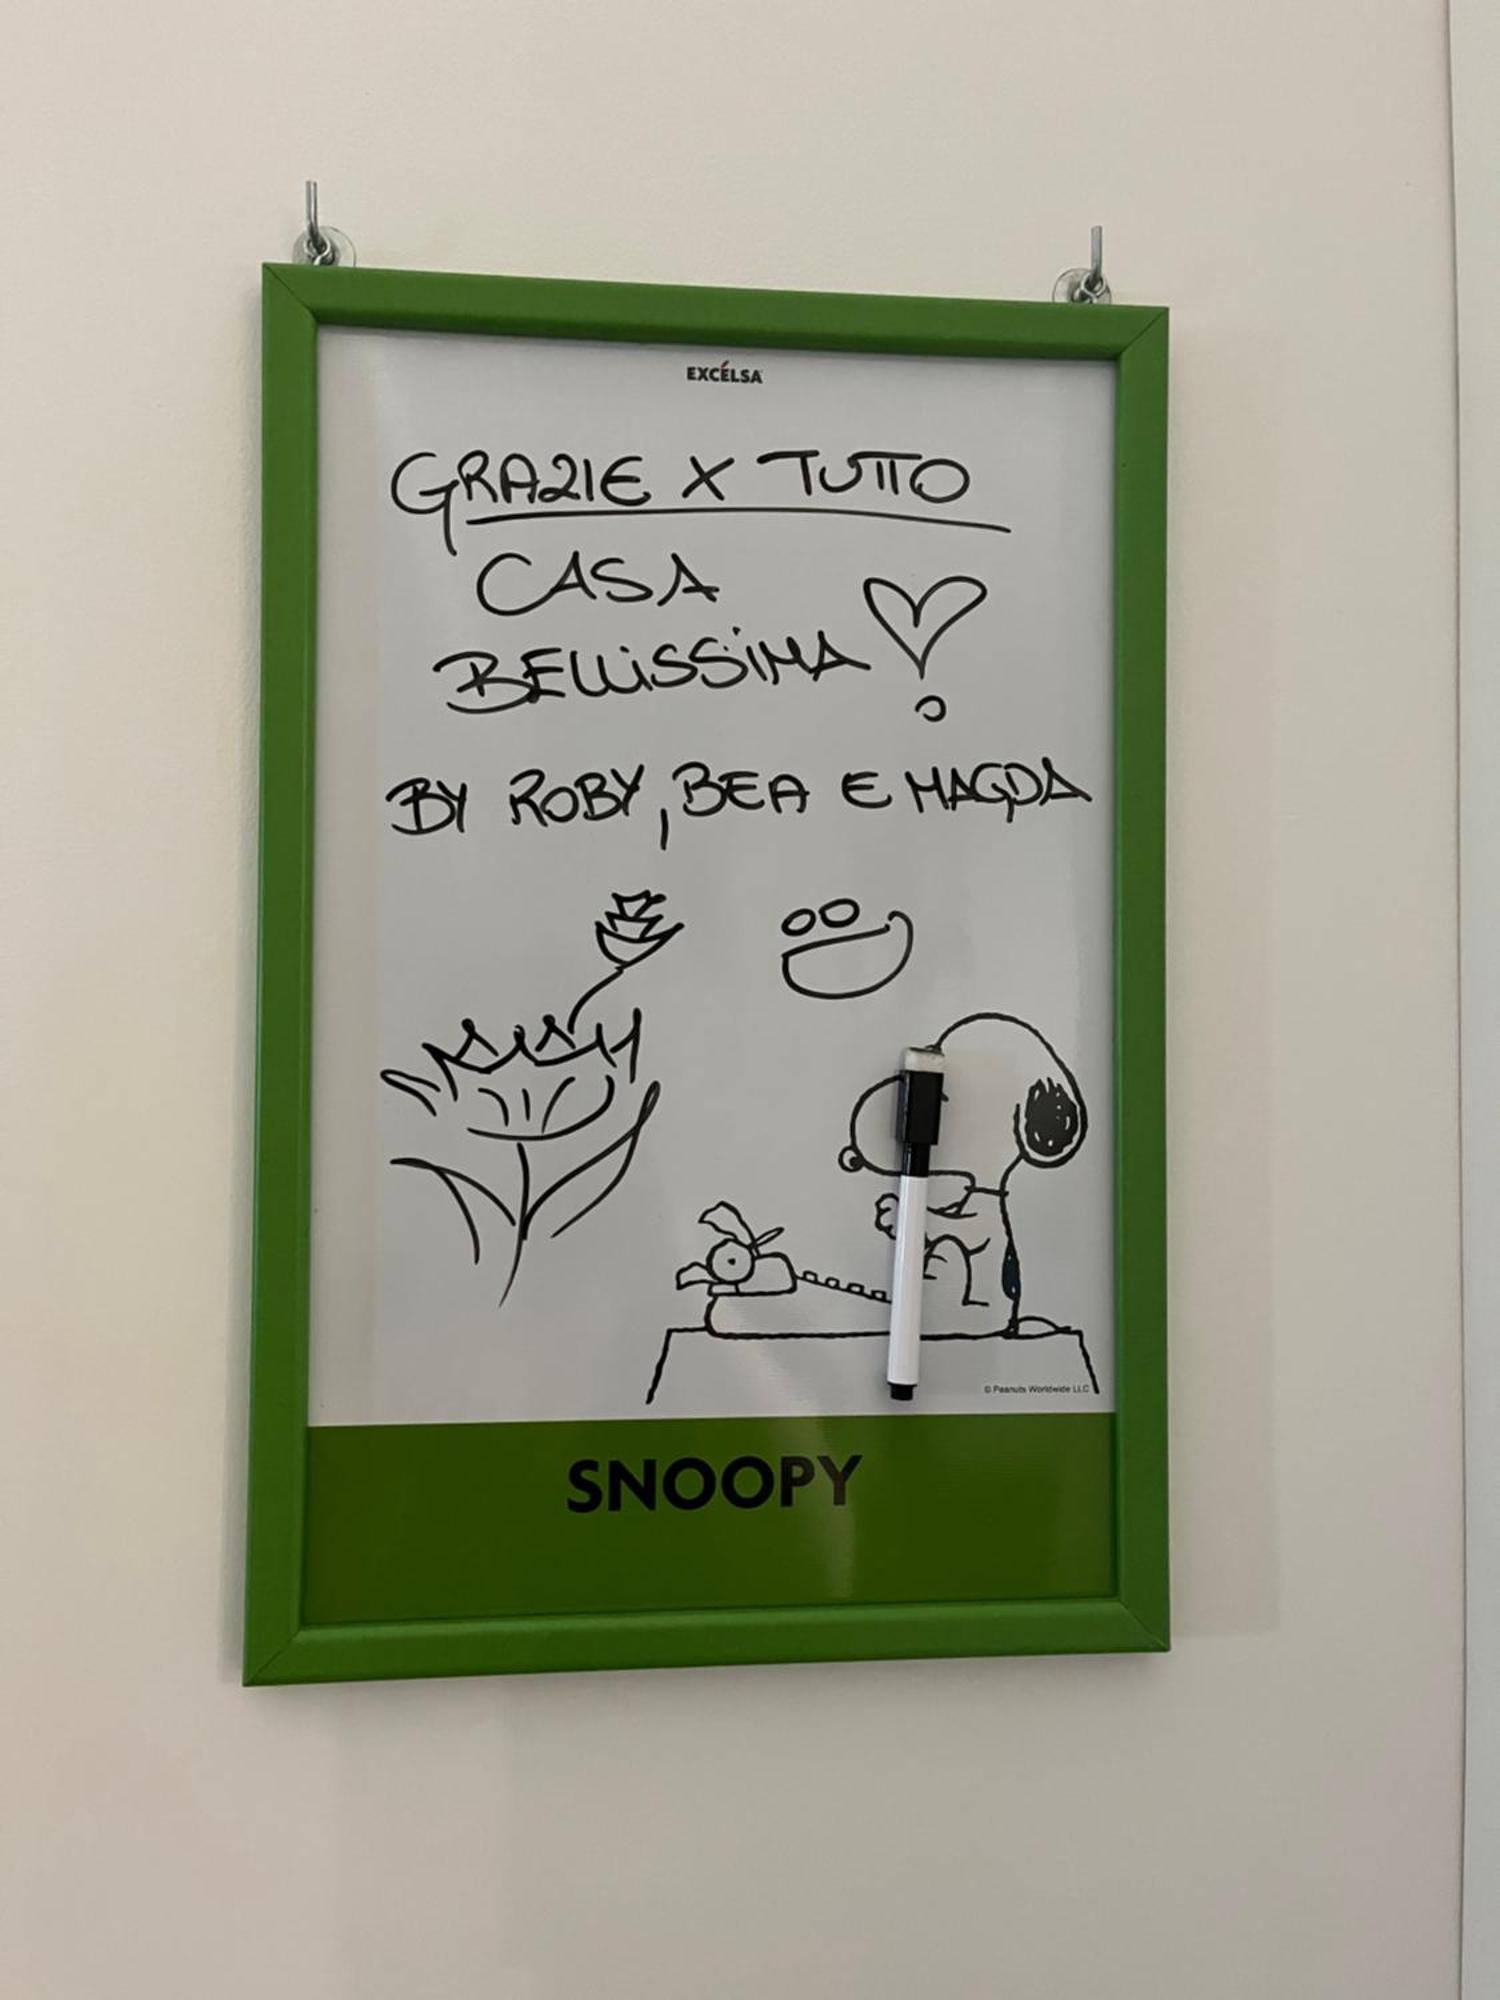 EXCÉLSA
GRAZIE X TUTTO
CASA
BELLiSSiMA
BY ROBY, BEA E MAGDA
© Peanuts Worldwide LLC
SNOOPY